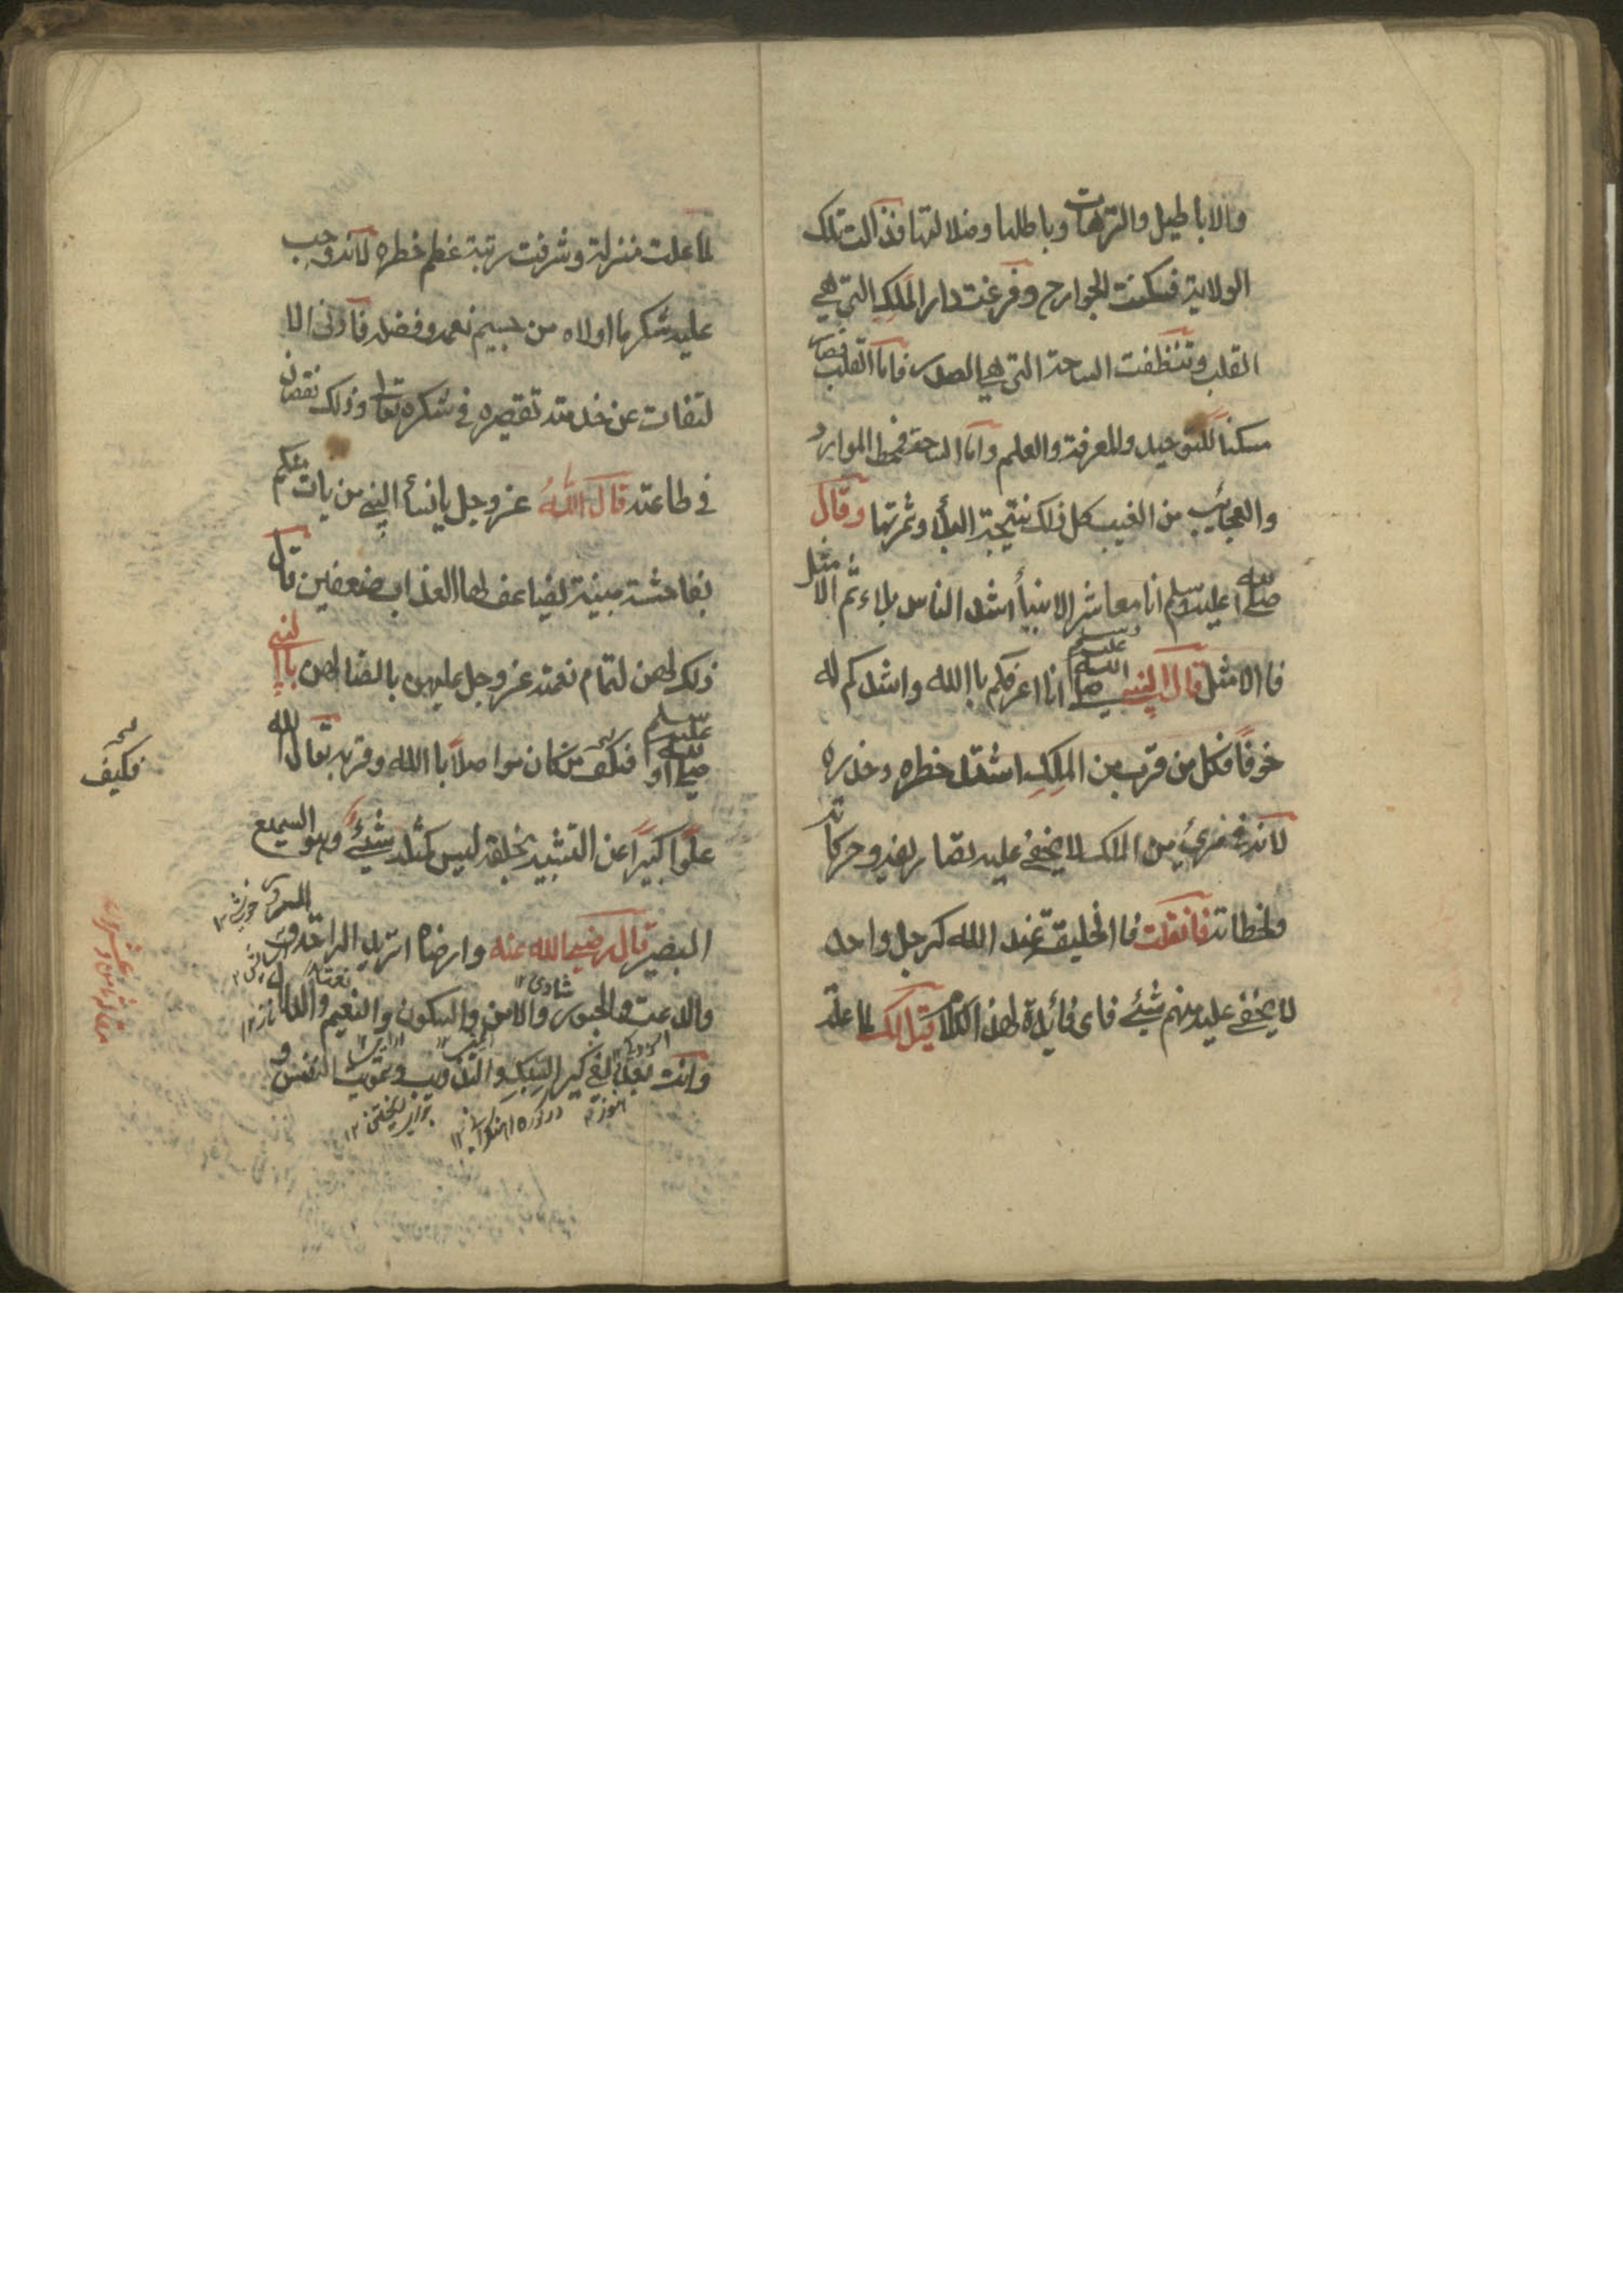 والاباطيل والترهات وباطلها وضلالتها فذالت تلك
الولاية فسكنت الجوارح وفرغت دار الملك التي هي
القلب وتنظفت الساحة التي هي الصدر فاما القلب فصار
مسكنا للتوحيد والمعرفة والعلم واما الساحة فمحط الموارد
والعجائب من الغيب كل ذلك نتيجة البلأ وثمرتها وقال
صلى الله عليه وسلم انا معاشر الانبيأ اشد الناس بلاء ثم الامثل
فا الامثل قال النبي صلى الله عليه وسلم انا اعرفكم با الله واشدكم له
خوفاً فكل من قرب من الملك اشتد خطره وحذره
لانه في مرئ من الملك لا يخفى عليه تصاريفه وحركاته
ولحظاته فان قلت فا الخليقة عند الله كرجل واحد
لا يخفى عليه منهم شيئ فاى فائدة لهذا الكلام قيل لك لما علة
لما علت منزلة وشرفت رتبة عظم خطره لانه وجب
عليه شكر ما اولاه من جسيم نعمه وفضله فأدنى الا
لتفات عن خدمته تقصيره في شكره تعا وذلك نقصان
في طاعته قال الله عز وجل يا نسأ النبي من يات منكم
بفاحشة مبينة يضاعف لها العذاب ضعفين قال
ذلك لهن لتمام نعمته عز وجل عليهن باتصالهن با النبي
صلى الله عليه وسلم فكيف من كان مواصلاً با الله وقربه تعال الله
علواً كبيراً عن التشبيه بخلقه ليس كمثله شيئ وهو السميع
البصير قال رضي الله عنه وارضاه اتريد الراحة والسرور
والدعت والحبور والامن والسكون والنعيم والدلال
وانت بعد في كير السبك والتذويب وتمويت النفس و
فكيف
شادى